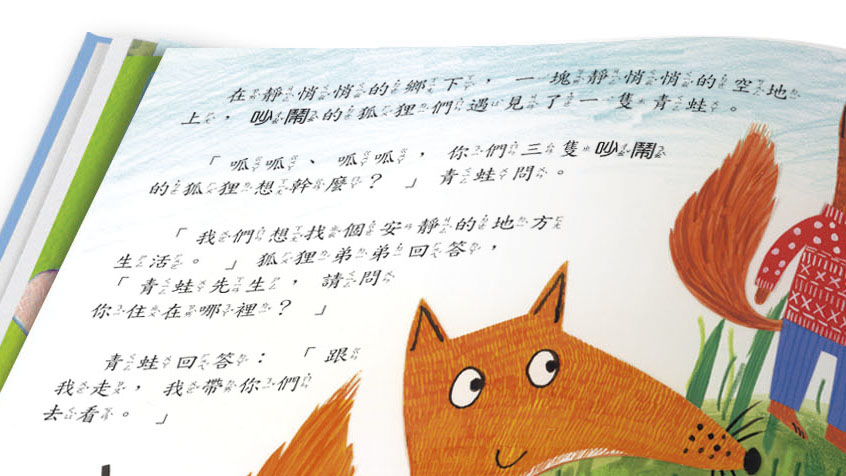 在靜悄悄的鄉下，一塊靜悄悄的空地
上，吵鬧的狐狸們遇見了一隻青蛙。
「呱呱、呱呱，你們三隻吵鬧
的狐狸想幹麼？」青蛙問。
「我們想找個安靜的地方
生活。」狐狸弟弟回答，
「青蛙先生，請問
你住在哪裡？」
青蛙回答：「跟
我走，我帶你們
去看。」